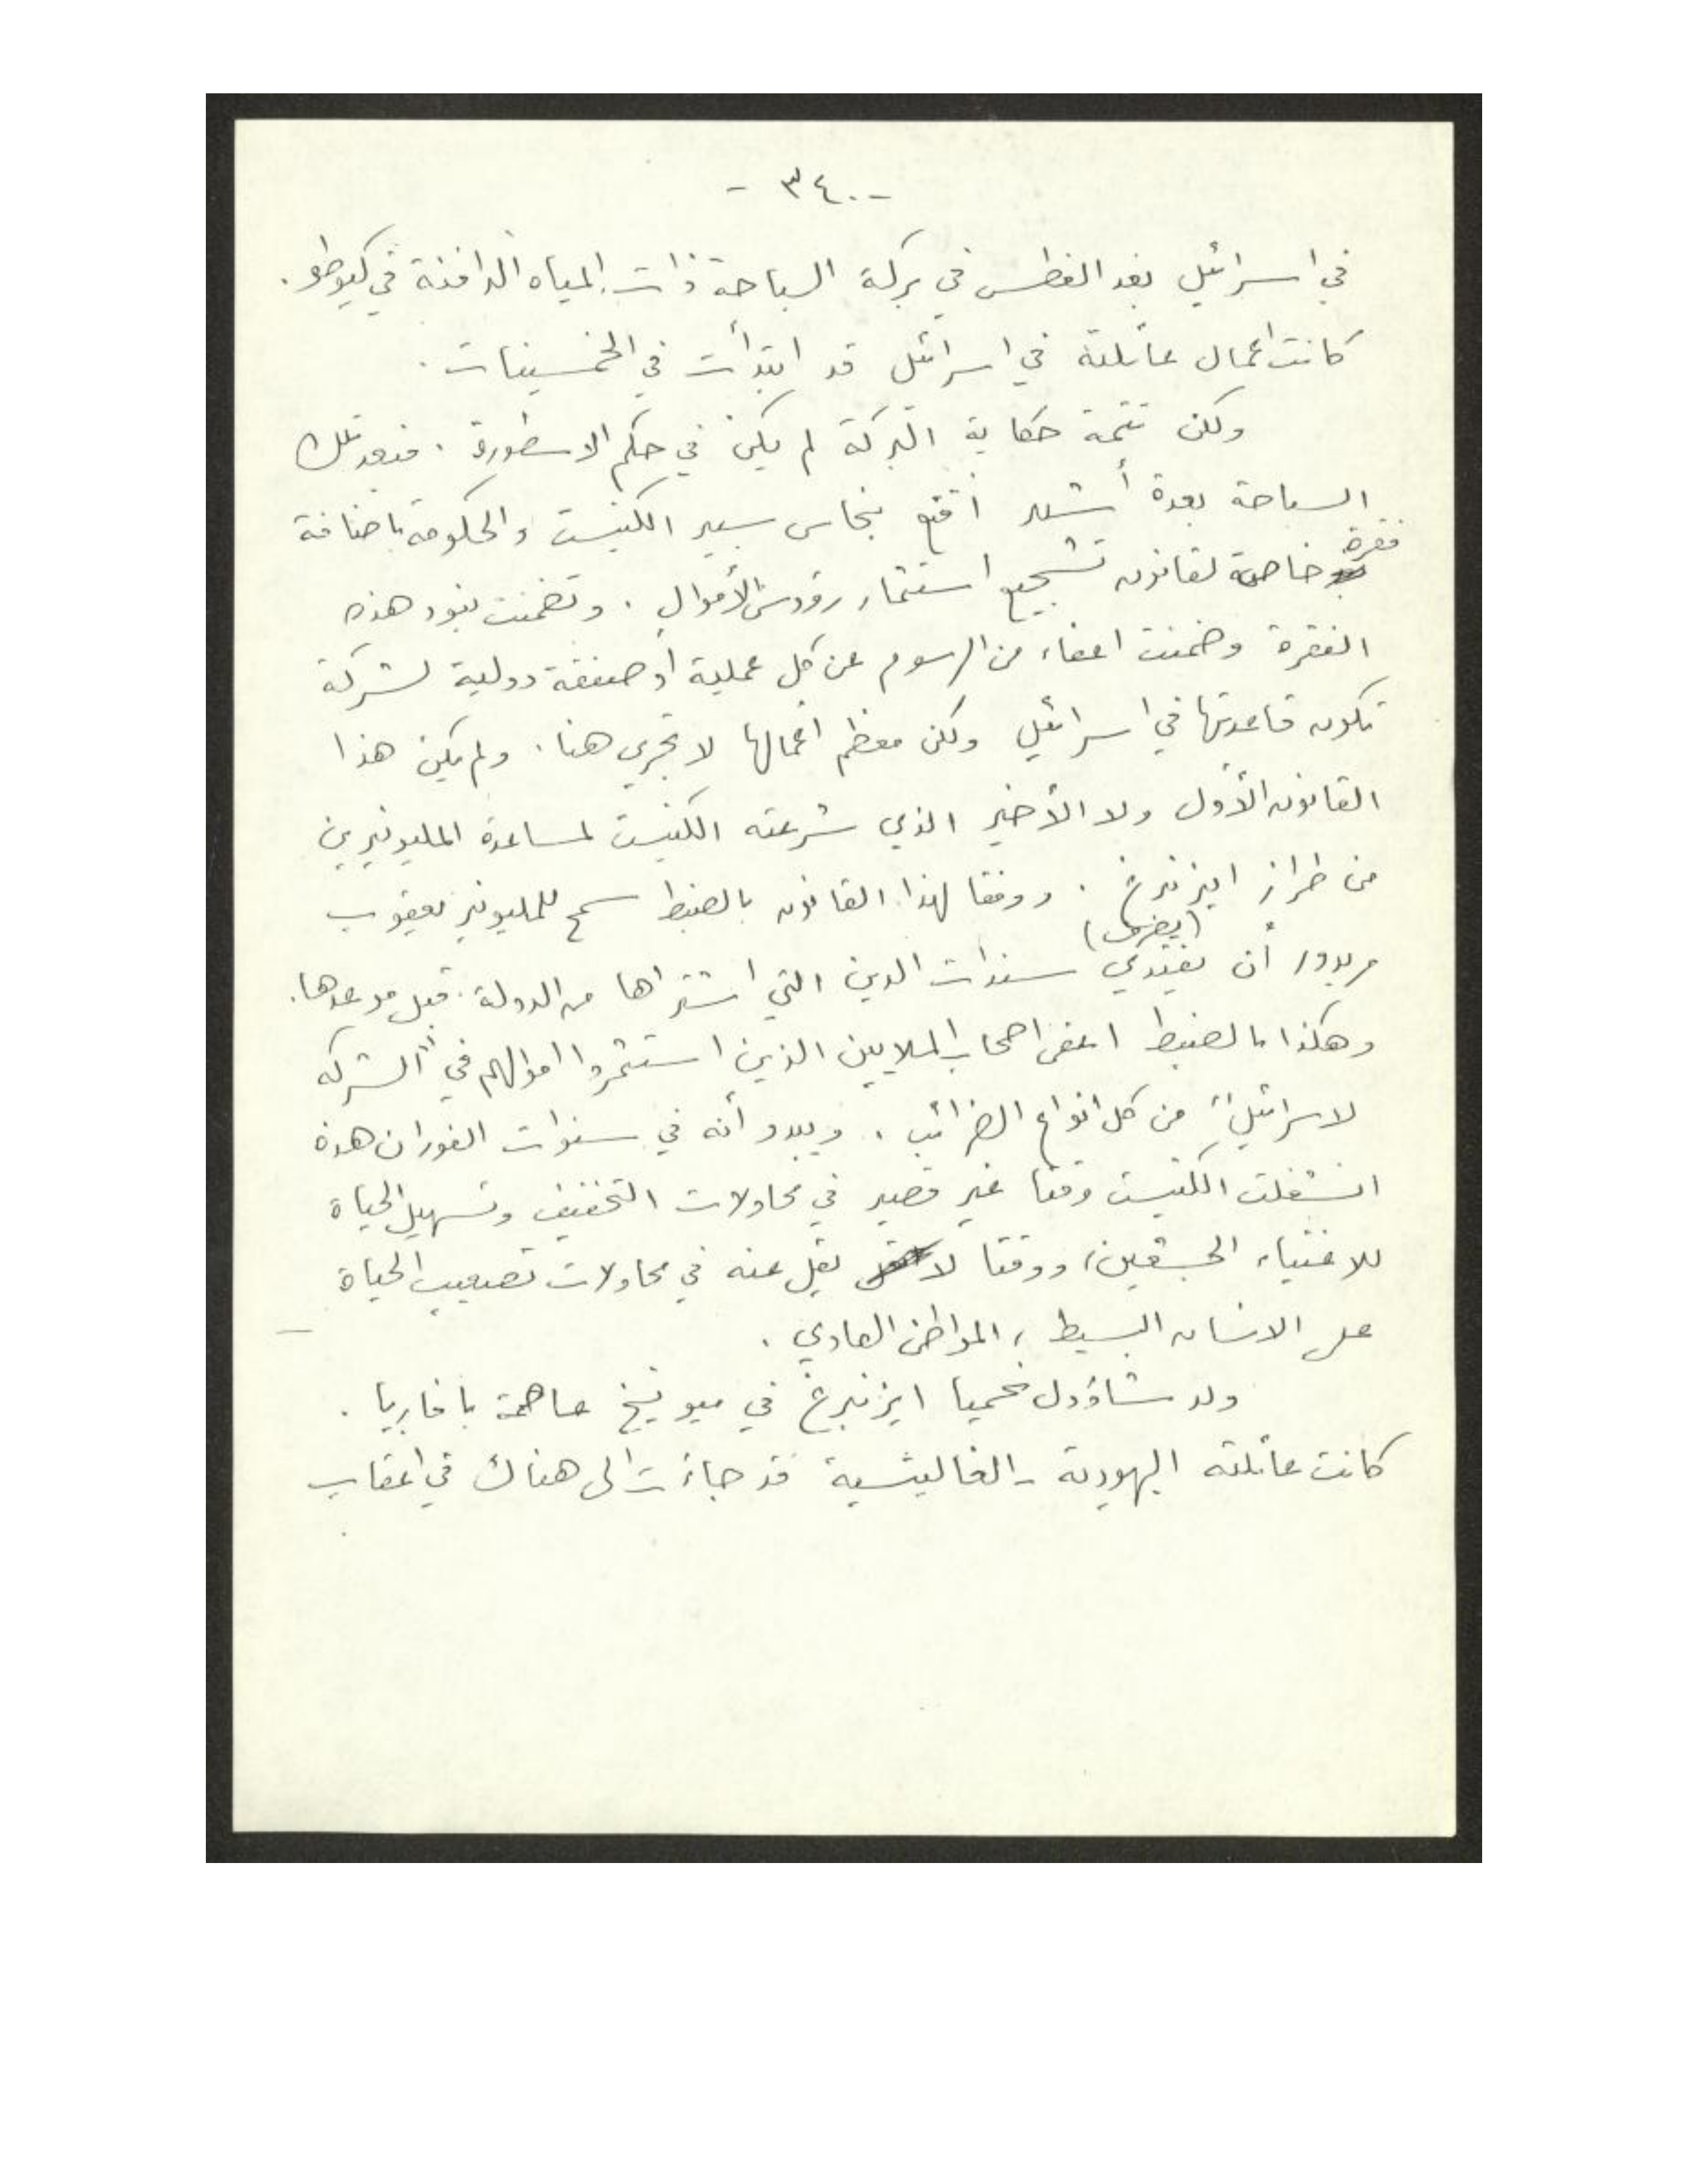 - ٣٤٠ -
في اسرائيل بعد الغطس في بركة السباحة ذات المياه الدافئة في كيوطو .
كانت اعمال عائلته في اسرائيل قد ابتدأت في الخمسينات .
ولكن تتمة حكاية البركة لم يكن في حكم الاسطورة . فبعد تلك
السباحة بعدة أشهر أقنع بنحاس سبير الكنيست والحكومة باضافة
فقرة
خاصة لقانون تشجيع استثمار رؤوس الأموال . وتضمنت بنود هذه
الفقرة وضمنت اعفاء من الرسوم عن كل عملية أو صفقة دولية لشركة
تكون قاعدتها في اسرائيل ولكن معظم أعمالها لا تجري هنا . ولم يكن هذا
القانون الأول ولا الأخير الذي شرعته الكنيست لمساعدة المليونيرين
من طراز ايزنبرغ . ووفقا لهذا القانون بالضبط سمح للمليونير يعقوب
(يصرف)
مريدور أن يفتدي سندات الدين التي اشتراها من الدولة . قبل موعدها .
وهكذا بالضبط اعفى اصحاب الملايين الذين استثمروا اموالهم في "الشركه
لاسرائيل" من كل انواع الضرائب . ويبدو أنه في سنوات الفوران هذه
انشغلت الكنيست وقتا غير قصير في محاولات التخفيف وتسهيل الحياة
للاغنياء الجشعين ، ووقتا لا يقل عنه في محاولات تصعيب الحياة
على الانسان البسيط ، المواطن العادي .
ولد شاؤول نحميا ايزنبرغ في ميونيخ عاصمة بافاريا .
كانت عائلته اليهودية - الغاليتسية قد جاءت الى هناك في اعقاب